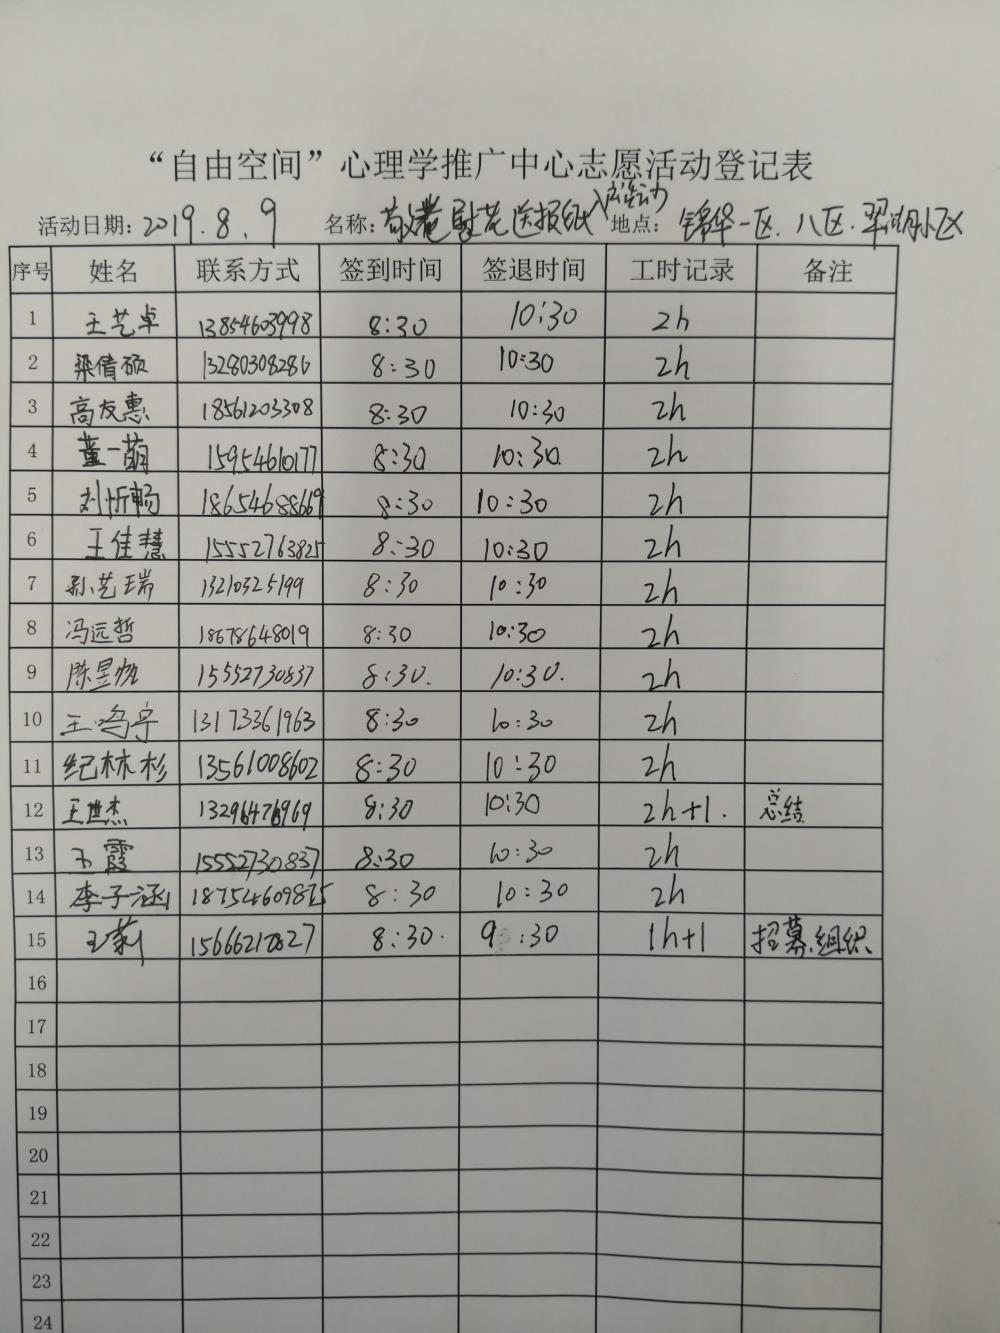 “自由空间”心理学推广中心志愿活动登记表
活动日期：2019.8.9 名称：敬老 送报纸 活动 地点：锦华一区.八区.翠湖小区
序号 姓名 联系方式 签到时间 签退时间 工时记录 备注
1 王艺卓 13854603998 8:30 10:30 2h
2 梁倩硕 13280308286 8:30 10:30 2h
3 高友惠 18561203308 8:30 10:30 2h
4 董一萌 15954610177 8:30 10:30 2h
5 刘忻畅 18654688669 8:30 10:30 2h
6 王佳慧 15552763825 8:30 10:30 2h
7 孙艺瑞 13210325199 8:30 10:30 2h
8 冯远哲 18678648019 8:30 10:30 2h
9 陈昱帆 15552730837 8:30. 10:30. 2h
10 王鸣宇 13173361963 8:30 10:30 2h
11 纪林杉 13561008602 8:30 10:30 2h
12 王世杰 13296476969 8:30 10:30 2h+1. 总结
13 王霞 15552730837 8:30 10:30 2h
14 李子涵 18754609875 8:30 10:30 2h
15 王莉 15666210827 8:30. 9:30 1h+1 招募.组织
16
17
18
19
20
21
22
23
24